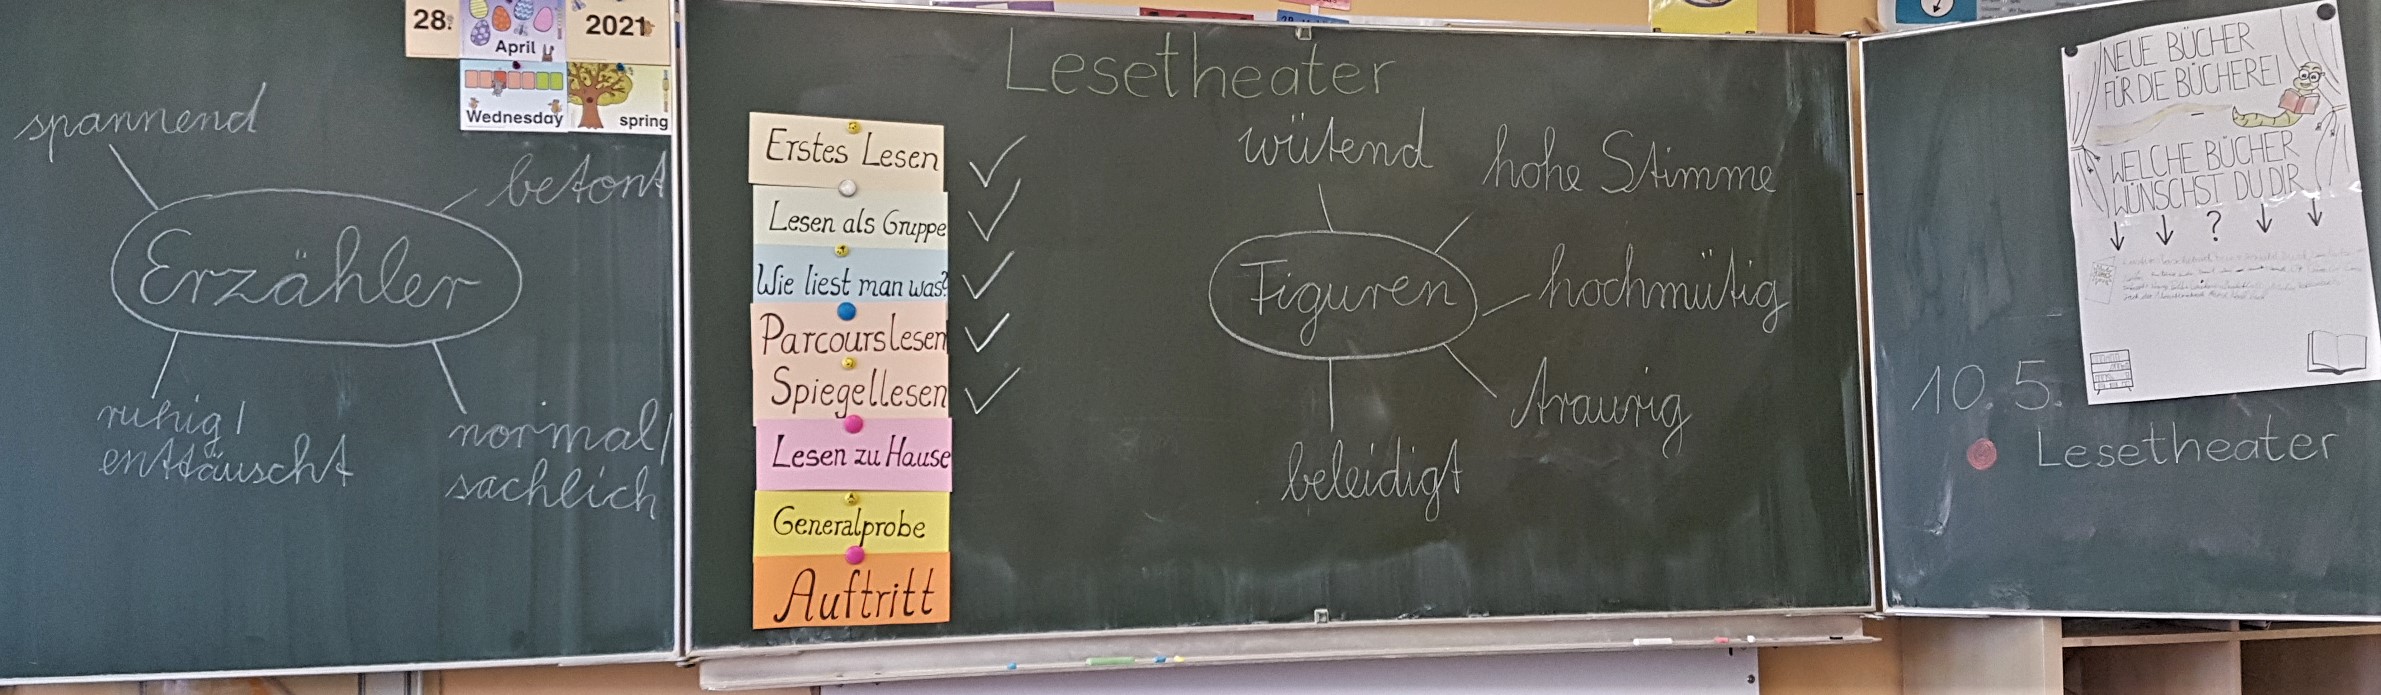 28.
April
2021
Wednesday
spring
spannend
betont
Erzähler
ruhig/
enttäuscht
normal/
sachlich
Lesetheater
Erstes Lesen
Lesen als Gruppe
Wie liest man was?
Parcourslesen
Spiegellesen
Lesen zu Hause
Generalprobe
Auftritt
wütend
hohe Stimme
Figuren
hochmütig
traurig
beleidigt
NEUE BÜCHER
FÜR DIE BÜCHEREI
–
WELCHE BÜCHER
WÜNSCHST DU DIR
?
10. 5.
Lesetheater